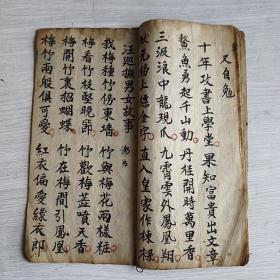 又自勉
十年攻書上學堂 果知富貴出文章
鰲魚勇起千山動 丹桂開時萬里香
三級浪中龍現爪 九霄雲外鳳凰翔
狀元榜上標金字 直入皇家作棟樑
汪廻撫男女故事
栽梅種竹傍東墻 竹與梅花兩樣粧
梅看竹枝堅晚節 竹歡梅蕊噴天香
梅開竹裏招蝴蝶 竹在梅間引鳳凰
梅竹兩般俱可愛 紅衣偏愛綠衣郎